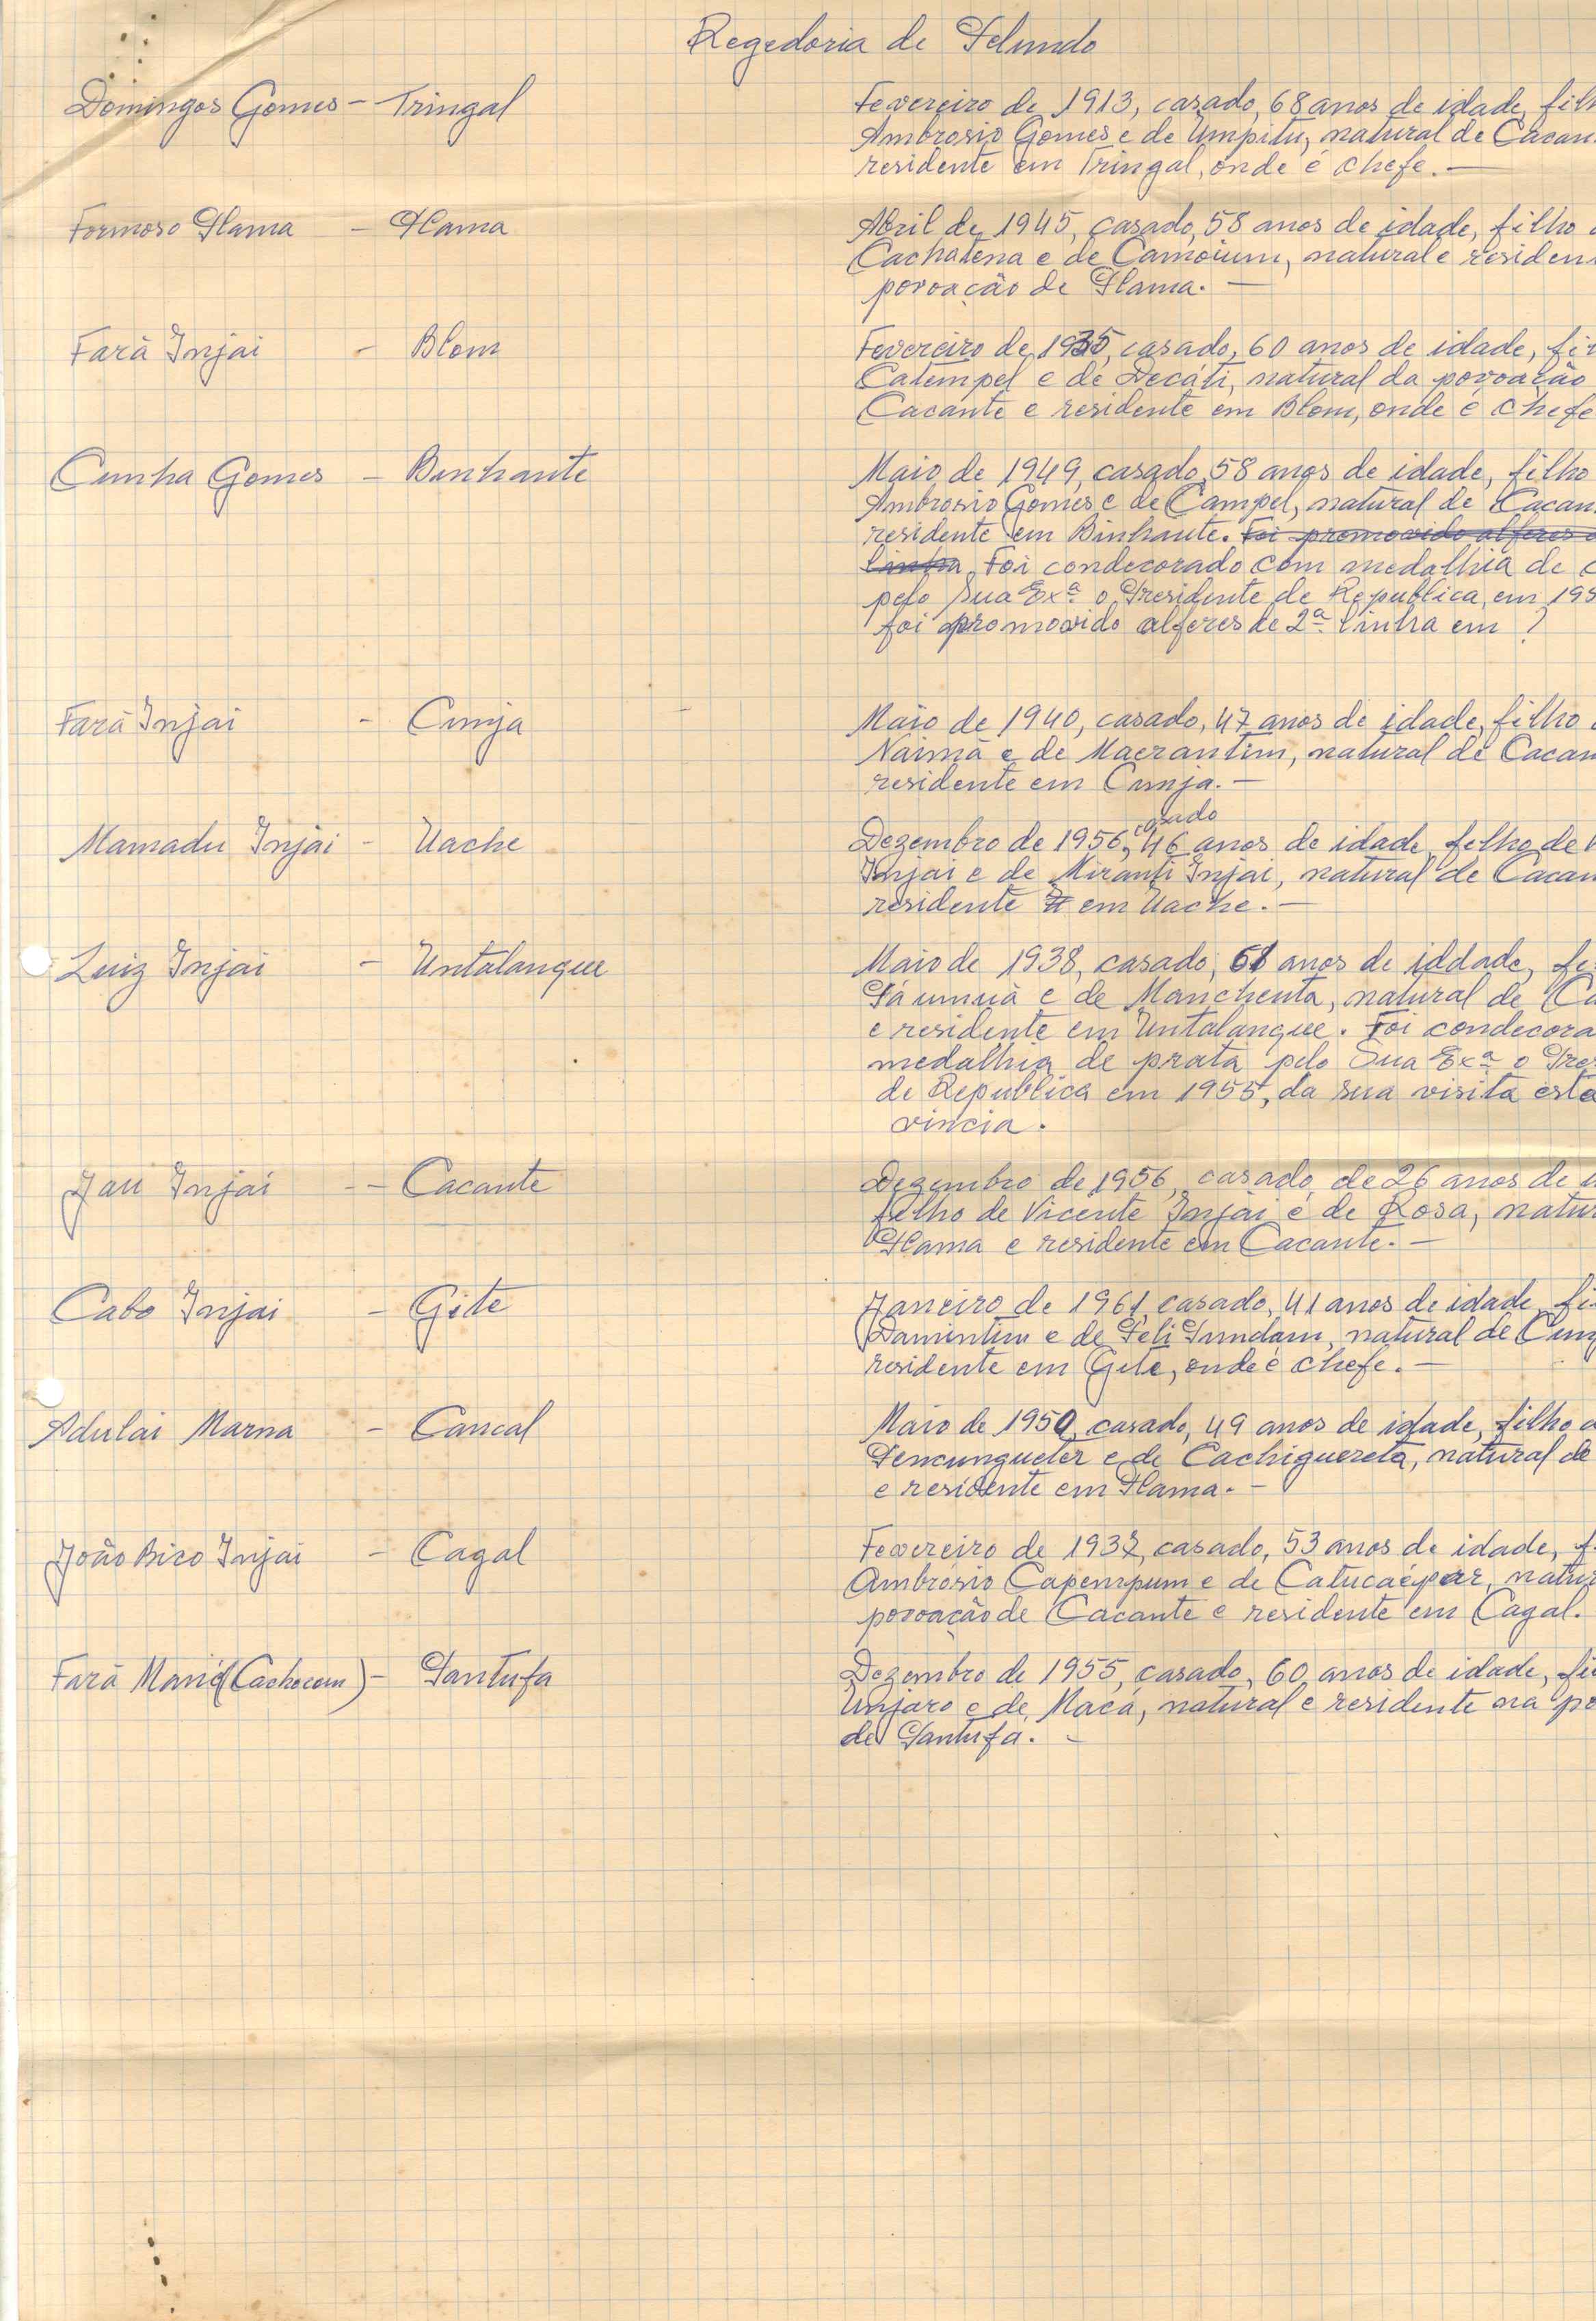 Regedoria de Pelundo
Domingos Gomes – Tringal Fevereiro de 1913, casado, 68 anos de idade, filh
Ambrosio Gomes e de Umpitu, natural de Cacan
residente em Tringal, onde é chefe. —
Formoso Plama – Plama Abril de 1945, casado, 58 anos de idade, filho
Cachatena e de Camoium, natural e residen
povoação de Plama. —
Farã Injai – Blom Fevereiro de 1935, casado, 60 anos de idade, fi
Catempel e de Decáti, natural da povoação
Cacante e residente em Blom, onde é chefe
Cunha Gomes – Binhante Maio de 1949, casado, 58 anos de idade, filho
Ambrosio Gomes e de Campel, natural de Cacan
residente em Binhante. Foi promovido alferes
linha. Foi condecorado com medalhia de
pelo Sua Exª o Presidente de Republica, em 195
foi promovido alferes de 2ª linha em ?
Farã Injai – Cunja Maio de 1940, casado, 47 anos de idade, filho
Naimã e de Macrantim, natural de Cacan
residente em Cunja. —
casado
Mamadu Injai – Uache Dezembro de 1956, 46 anos de idade, felho de
Injai e de Miranti Injai, natural de Cacan
residente em Uache. —
Luiz Injai – Untalangue Maio de 1938, casado, 61 anos de iddade, fi
e de Manchenta, natural de Ca
e residente em Untalangue. Foi condecora
medalhia de prata pelo Sua Exª o Pres
de Republica em 1955, da sua visita esta
vincia.
Jau Injai -- Cacante Dezembro de 1956, casado, de 26 anos de
felho de Vicente Injai e de Rosa, natur
Plama e residente em Cacante. —
Cabo Injai – Gite Janeiro de 1961, casado, 41 anos de idade, fi
Damintim e de Feli Pundam, natural de Cun
residente em Gite, onde é chefe. —
Adulai Marna – Cancal Maio de 1950, casado, 49 anos de idade, filho
Pencungueter e de Cachiguereta, natural de
e residente em Plama. –
João Bico Injai – Cagal Fevereiro de 1932, casado, 53 anos de idade, f
Ambrosio Capempum e de natur
povoação de Cacante e residente em Cagal.
Farã Mané (Cachocem) – Pantufa Dezembro de 1955, casado, 60 anos de idade, fi
Unjaro e de Macá, natural e residente na po
de Pantufa. –